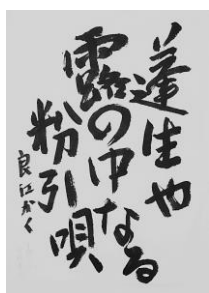 蓬生や
露の中なる
粉引唄
良江かく